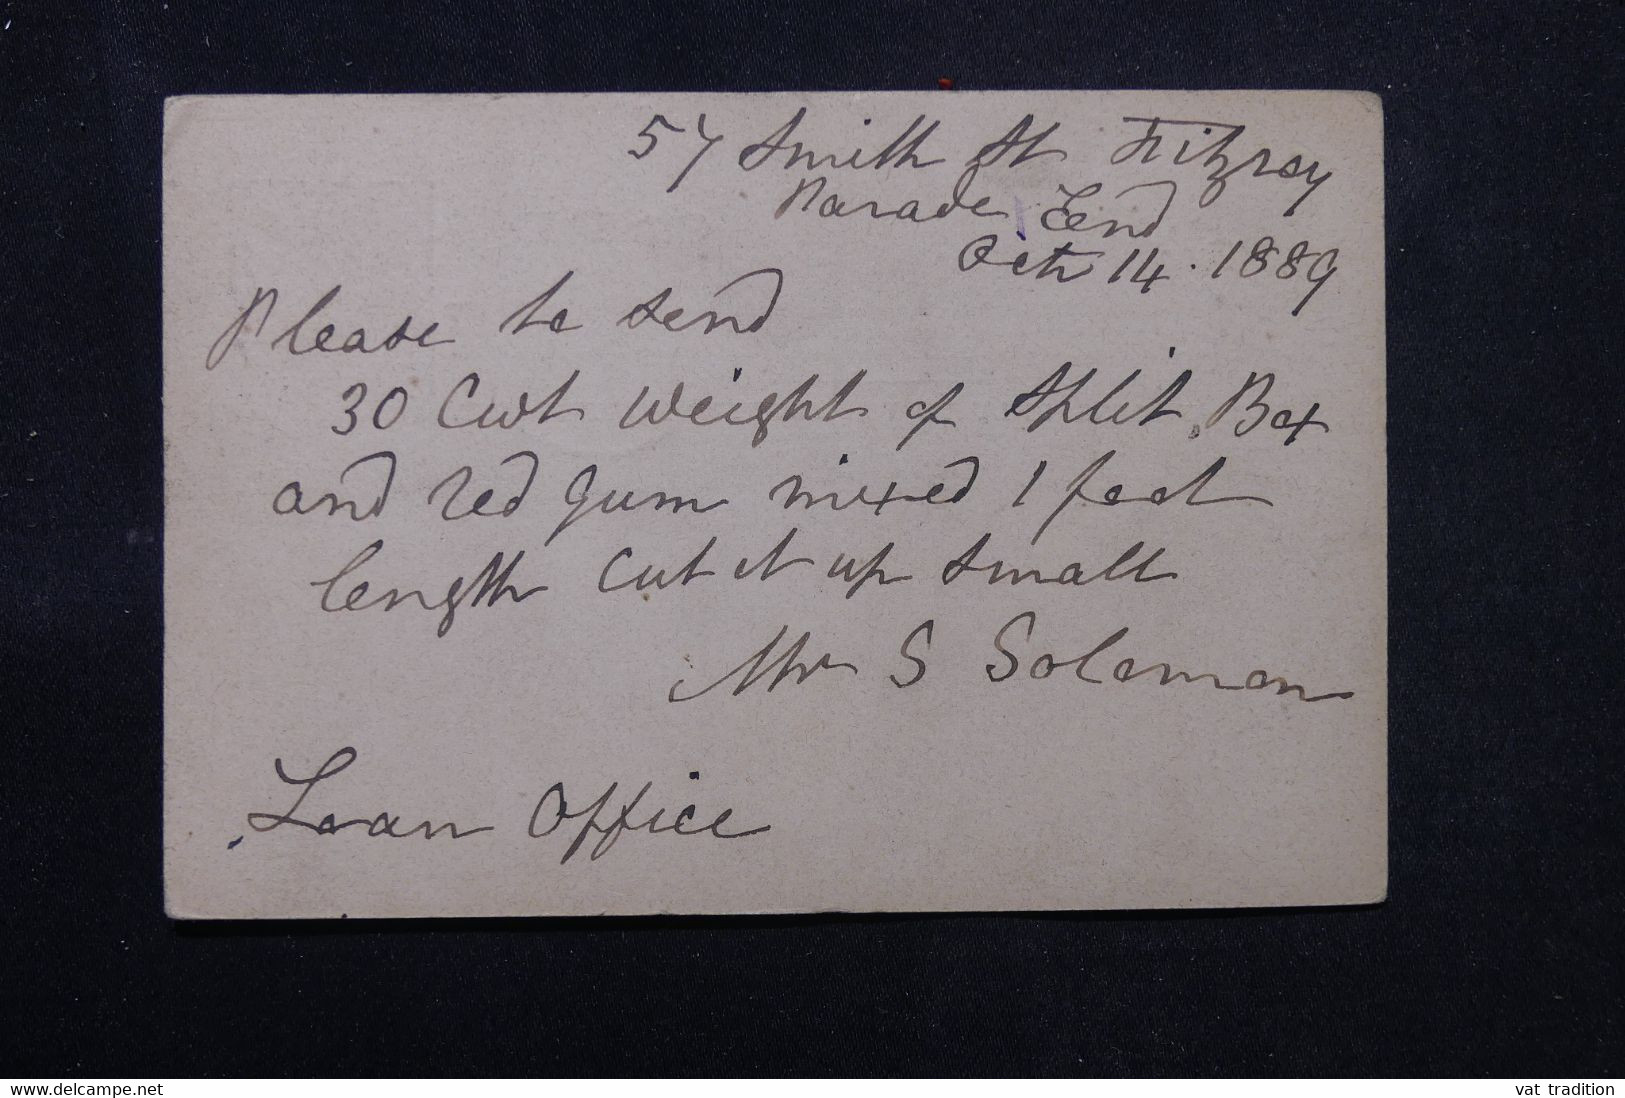 57 Smith St Fitzroy
Parade End
Oct 14 . 1889
Please to send
30 Cwt Weight of Split Box
and red gum mixed 1 feet
length cut it up small
Mr S Solomon
Loan Office
www.delcampe.net
vat tradition